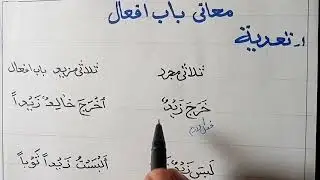 معانی باب افعال
۱- تعدیة
ثلاثی مجرد ثلاثی مزید باب افعال
خَرَجَ زَیْدٌ اَخْرَجَ خَالِدٌ زَیْداً
فعل لازم
لَبِسَ زَیْدٌ اَلْبَسْتُ زَیْداً ثَوْباً